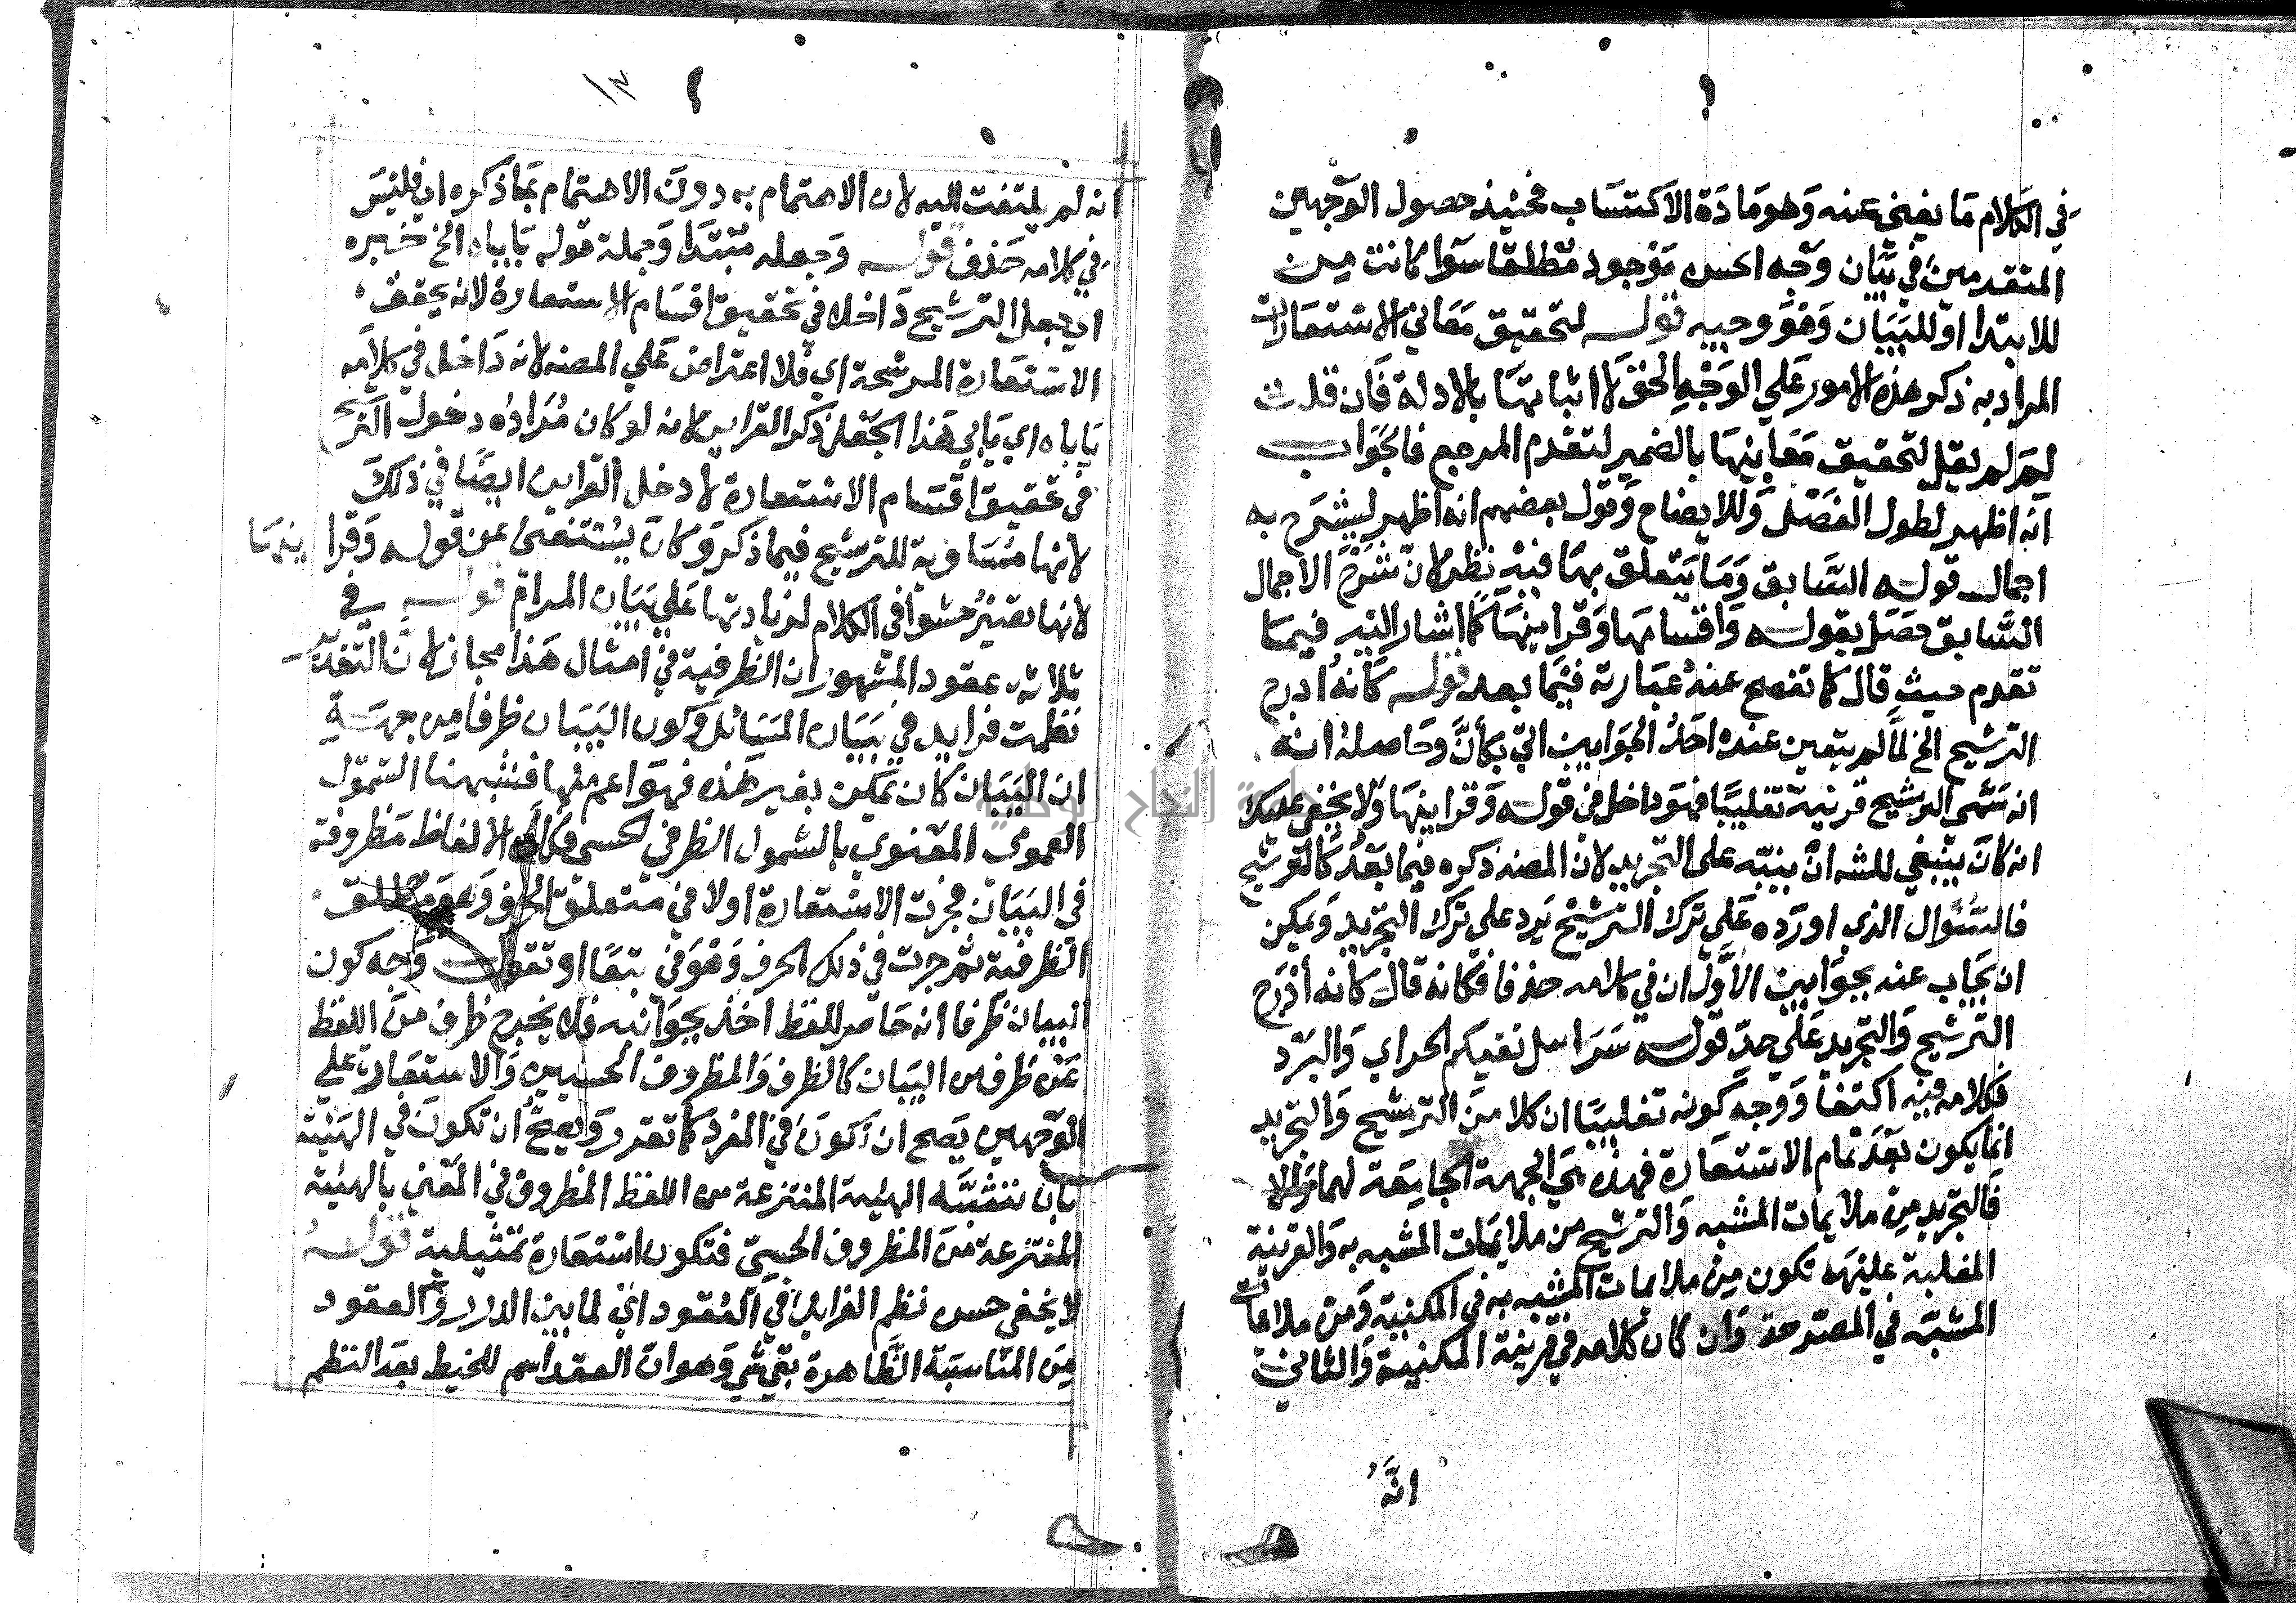 في الكلام ما يغني عنه وهو مادة الاكتساب فحينيذ حصول الوجهين
المتقدمين في بيان وجه الحسن موجود مطلقا سوا كانت من
للابتدا او للبيان وهو وجيه قوله لتحقيق معاني الاستعارات
المراد به ذكر هذه الامور على الوجه الحق لا اثباتها بالادلة فان قلت
لم لم يقل لتحقيق معانيها بالضمير لتقدم المرجع فالجواب
انه اظهر لطول الفصل وللايضاح وقول بعضهم انه اظهر ليشرح به
اجمال قوله السابق وما يتعلق بها فيه نظر لان شرح الاجمال
السابق حصل بقوله واقسامها وقراينها كما اشار اليه فيما
تقدم حيث قال كما تفصح عنه عبارته فيما بعد قوله كانه ادرج
الترشيح الخ لما لم يتعين عنده احد الجوابين اتي بكأن وحاصله انه
انه سمى الترشيح قرينة تغليبا فهو داخل في قوله وقراينها ولا يخفى عليك
انه كان ينبغي للشه ان ينبه على التجريد لان المصنه ذكره فيما بعد كالترشيح
فالسؤال الذي اورده على ترك الترشيح يرد على ترك التجريد ويمكن
ان يجاب عنه بجوابين الأول ان في كلامه حذفا فكانه قال كأنه أدرج
الترشيح والتجريد على حد قوله سرابيل تقيكم الحر اي والبرد
فكلامه فيه اكتفا ووجه كونه تغليبا ان كلا من الترشيح والتجريد
انما يكون بعد تمام الاستعارة فهذه هي الجهة الجامعة لهما
فالتجريد من ملايمات المشبه والترشيح من ملايمات المشبه به والقرينة
المغلبة عليهما تكون من ملايمات المشبه به في المكنية ومن ملايمات
المشبه في المصرحة وان كان كلامه في قرينة المكنية والثاني
انه
١٣
انه لم يلتفت اليه لان الاهتمام به دون الاهتمام بما ذكره اي فليس
في كلامه حذف قوله وجعله مبتدا وجملة قوله ياباه الخ خبره
اي جعل الترشيح داخلا في تحقيق اقسام الاستعارة لانه يحقق
الاستعارة المرشحة اي فلا اعتراض على المصنه لانه داخل في كلامه
ياباه اي يابى هذا الجعل ذكر القراين لانه لو كان مراده دخول الترشيح
في تحقيق اقسام الاستعارة لادخل القراين ايضا في ذلك
لانها مساوية للترشيح فيما ذكر وكان يستغنى عن قوله وقراينها
لانها تصير حشوا في الكلام لزيادتها على بيان المرام قوله في
ثلاثة عقود المشهور ان الظرفية في امثال هذا مجاز لان التقدير
نظمت فرايد في بيان المسائل وكون البيان ظرفا من جهة
ان البيان كان يمكن بغير هذه فهو اعم منها فشبهنا الشمول
العمومي المعنوي بالشمول الظرفي الحسي فكأن الالفاظ مظروفة
في البيان فجرت الاستعارة اولا في متعلق الحرف وهو مطلق
الظرفية ثم جرت في ذلك الحرف وهو في تبعا او تقول وجه كون
البيان ظرفا انه حاصر للفظ اخذ بجوانبه فلا يخرج طرف من اللفظ
عن طرف من البيان كالظرف والمظروف الحسيين والاستعارة على
الوجهين يصح ان تكون في المفرد كما تقرر ويصح ان تكون في الهيئة
بان نشبه الهيئة المنتزعة من اللفظ المظروف في المعنى بالهيئة
المنتزعة من المظروف الحسي فتكون استعارة تمثيلية قوله
لا يخفى حسن نظم الفرايد في العقود اي لما بين الدرر والعقود
من المناسبة الظاهرة بقي شي وهو ان العقد اسم للخيط بعد النظم